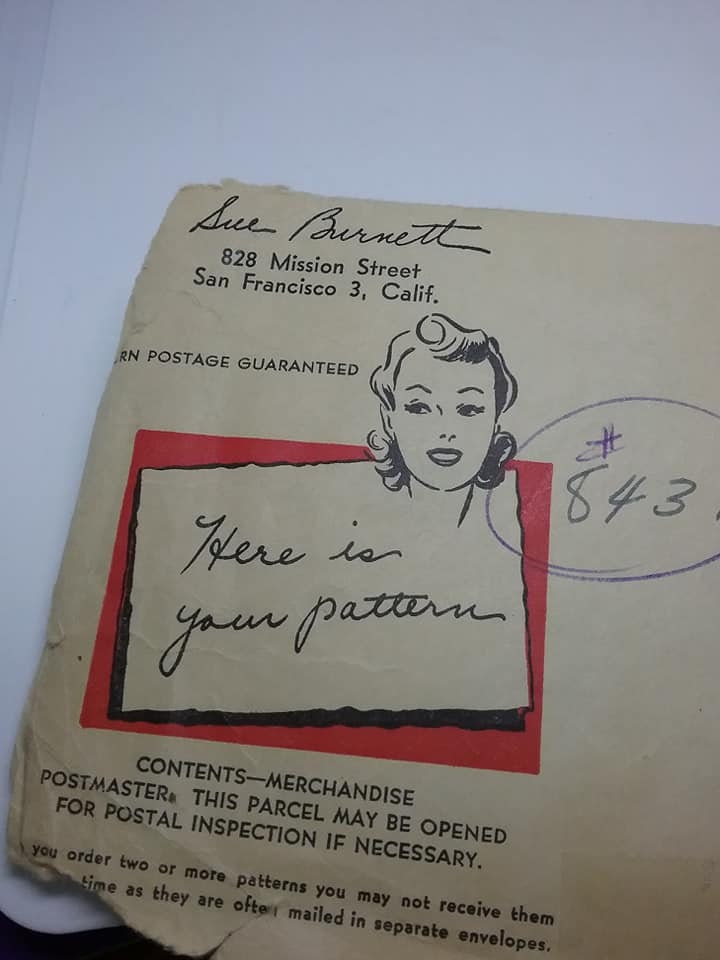 Sue Burnett
828 Mission Street
San Francisco 3, Calif.
RN POSTAGE GUARANTEED
#
843
Here is
your pattern
CONTENTS—MERCHANDISE
POSTMASTER: THIS PARCEL MAY BE OPENED
FOR POSTAL INSPECTION IF NECESSARY.
you order two or more patterns you may not receive them
time as they are often mailed in separate envelopes.